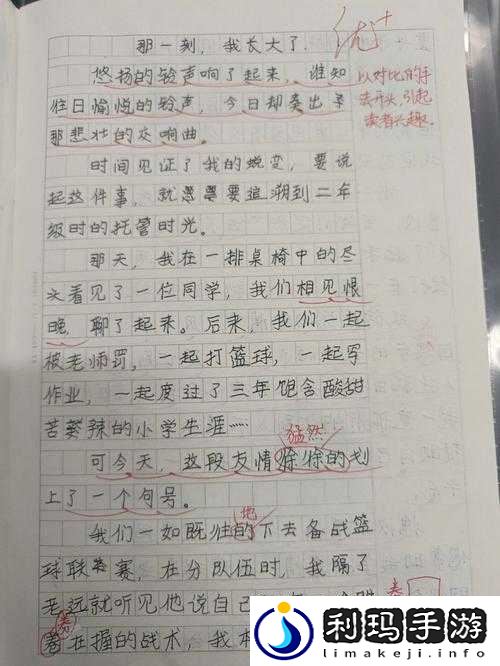 那一刻，我长大了.
优+
悠扬的铃声响了起来，谁知
往日愉悦的铃声，今日却奏出了
那悲壮的交响曲。
以对比的手
法开头，引起
读者兴趣。
时间见证了我的蜕变，要说
起这件事，就要追溯到二年
级时的托管时光。
那天，我在一排桌椅中的尽
头看见了一位同学，我们相见恨
晚，聊了起来。后来，我们一起
被老师罚，一起打篮球，一起写
作业，一起度过了三年饱含酸甜
苦辣的小学生涯……
猛然
可今天，这段友情的划
上了一个句号。
地
我们一如既往的下去备战篮
球联赛，在分队伍时，我隔了
老远就听见他说自己
券在握的战术，我
利玛手游
limakeji.com